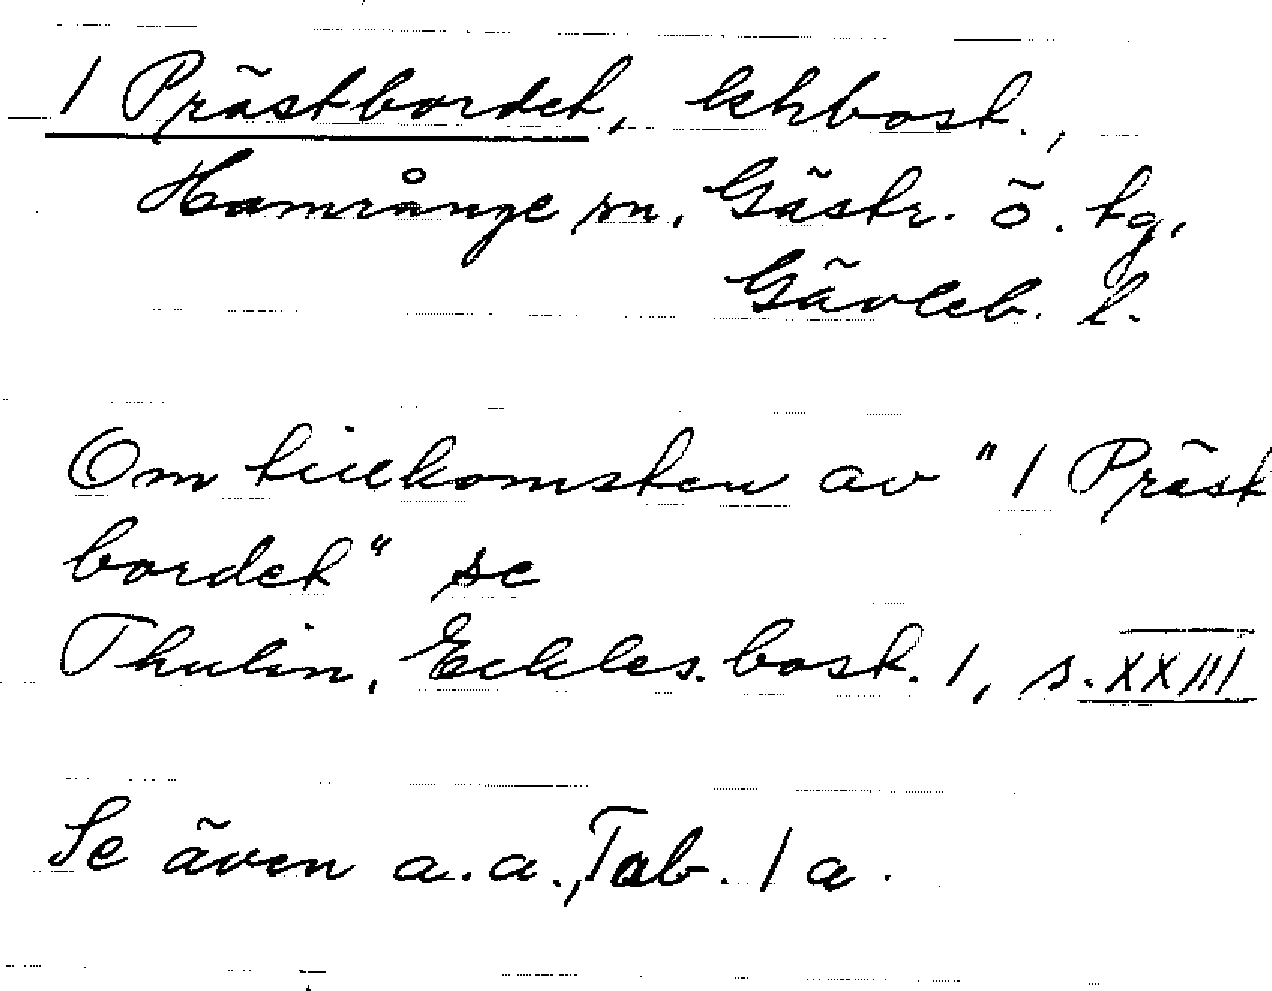 1 Prästbordet, khbost.,
Hamrånge sn. Gästr. ö. tg.
Gävleb. l.
Om tillkomsten av "1 Präst
bordet" se
Thulin, Eckles. bost. 1, s. XXIII
Se även a.a., Tab. 1 a.